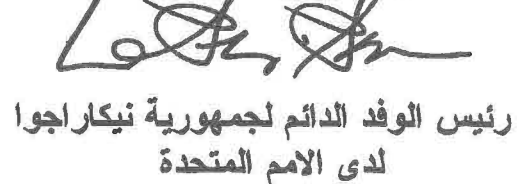 رئيس الوفد الدائم لجمهورية نيكاراجوا
لدى الامم المتحدة